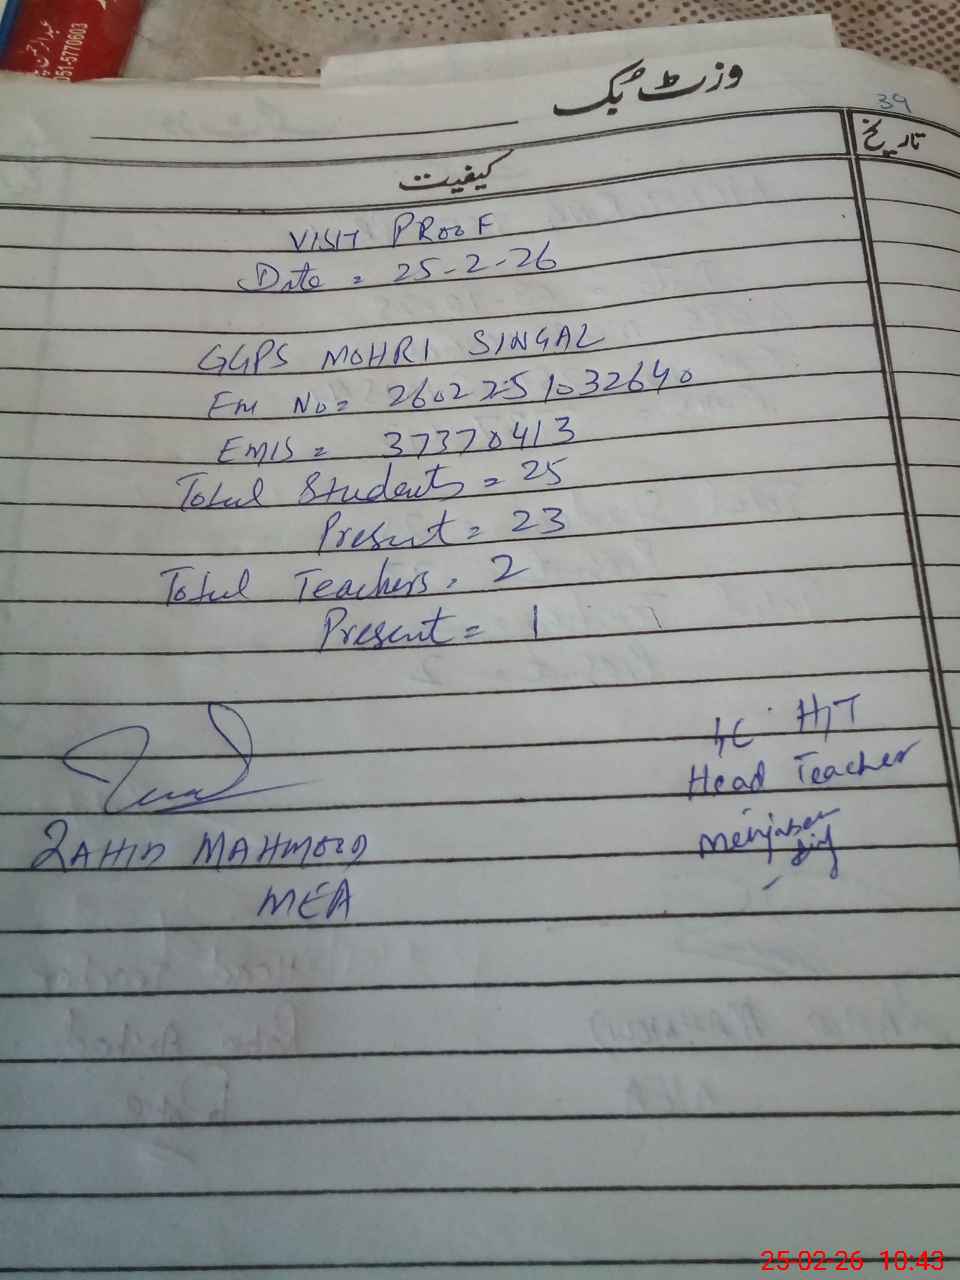 عبدالرحمن
051-5770603
وزٹ بُک
39
تاریخ
کیفیت
VISIT PROOF
Date = 25-2-26
GGPS MOHRI SINGAL
EM No = 2602251032640
EMIS = 37370413
Total Students = 25
Present = 23
Total Teachers = 2
Present = 1
I/C H/T
Head Teacher
ZAHID MAHMOOD
MEA
25-02-26 10:43